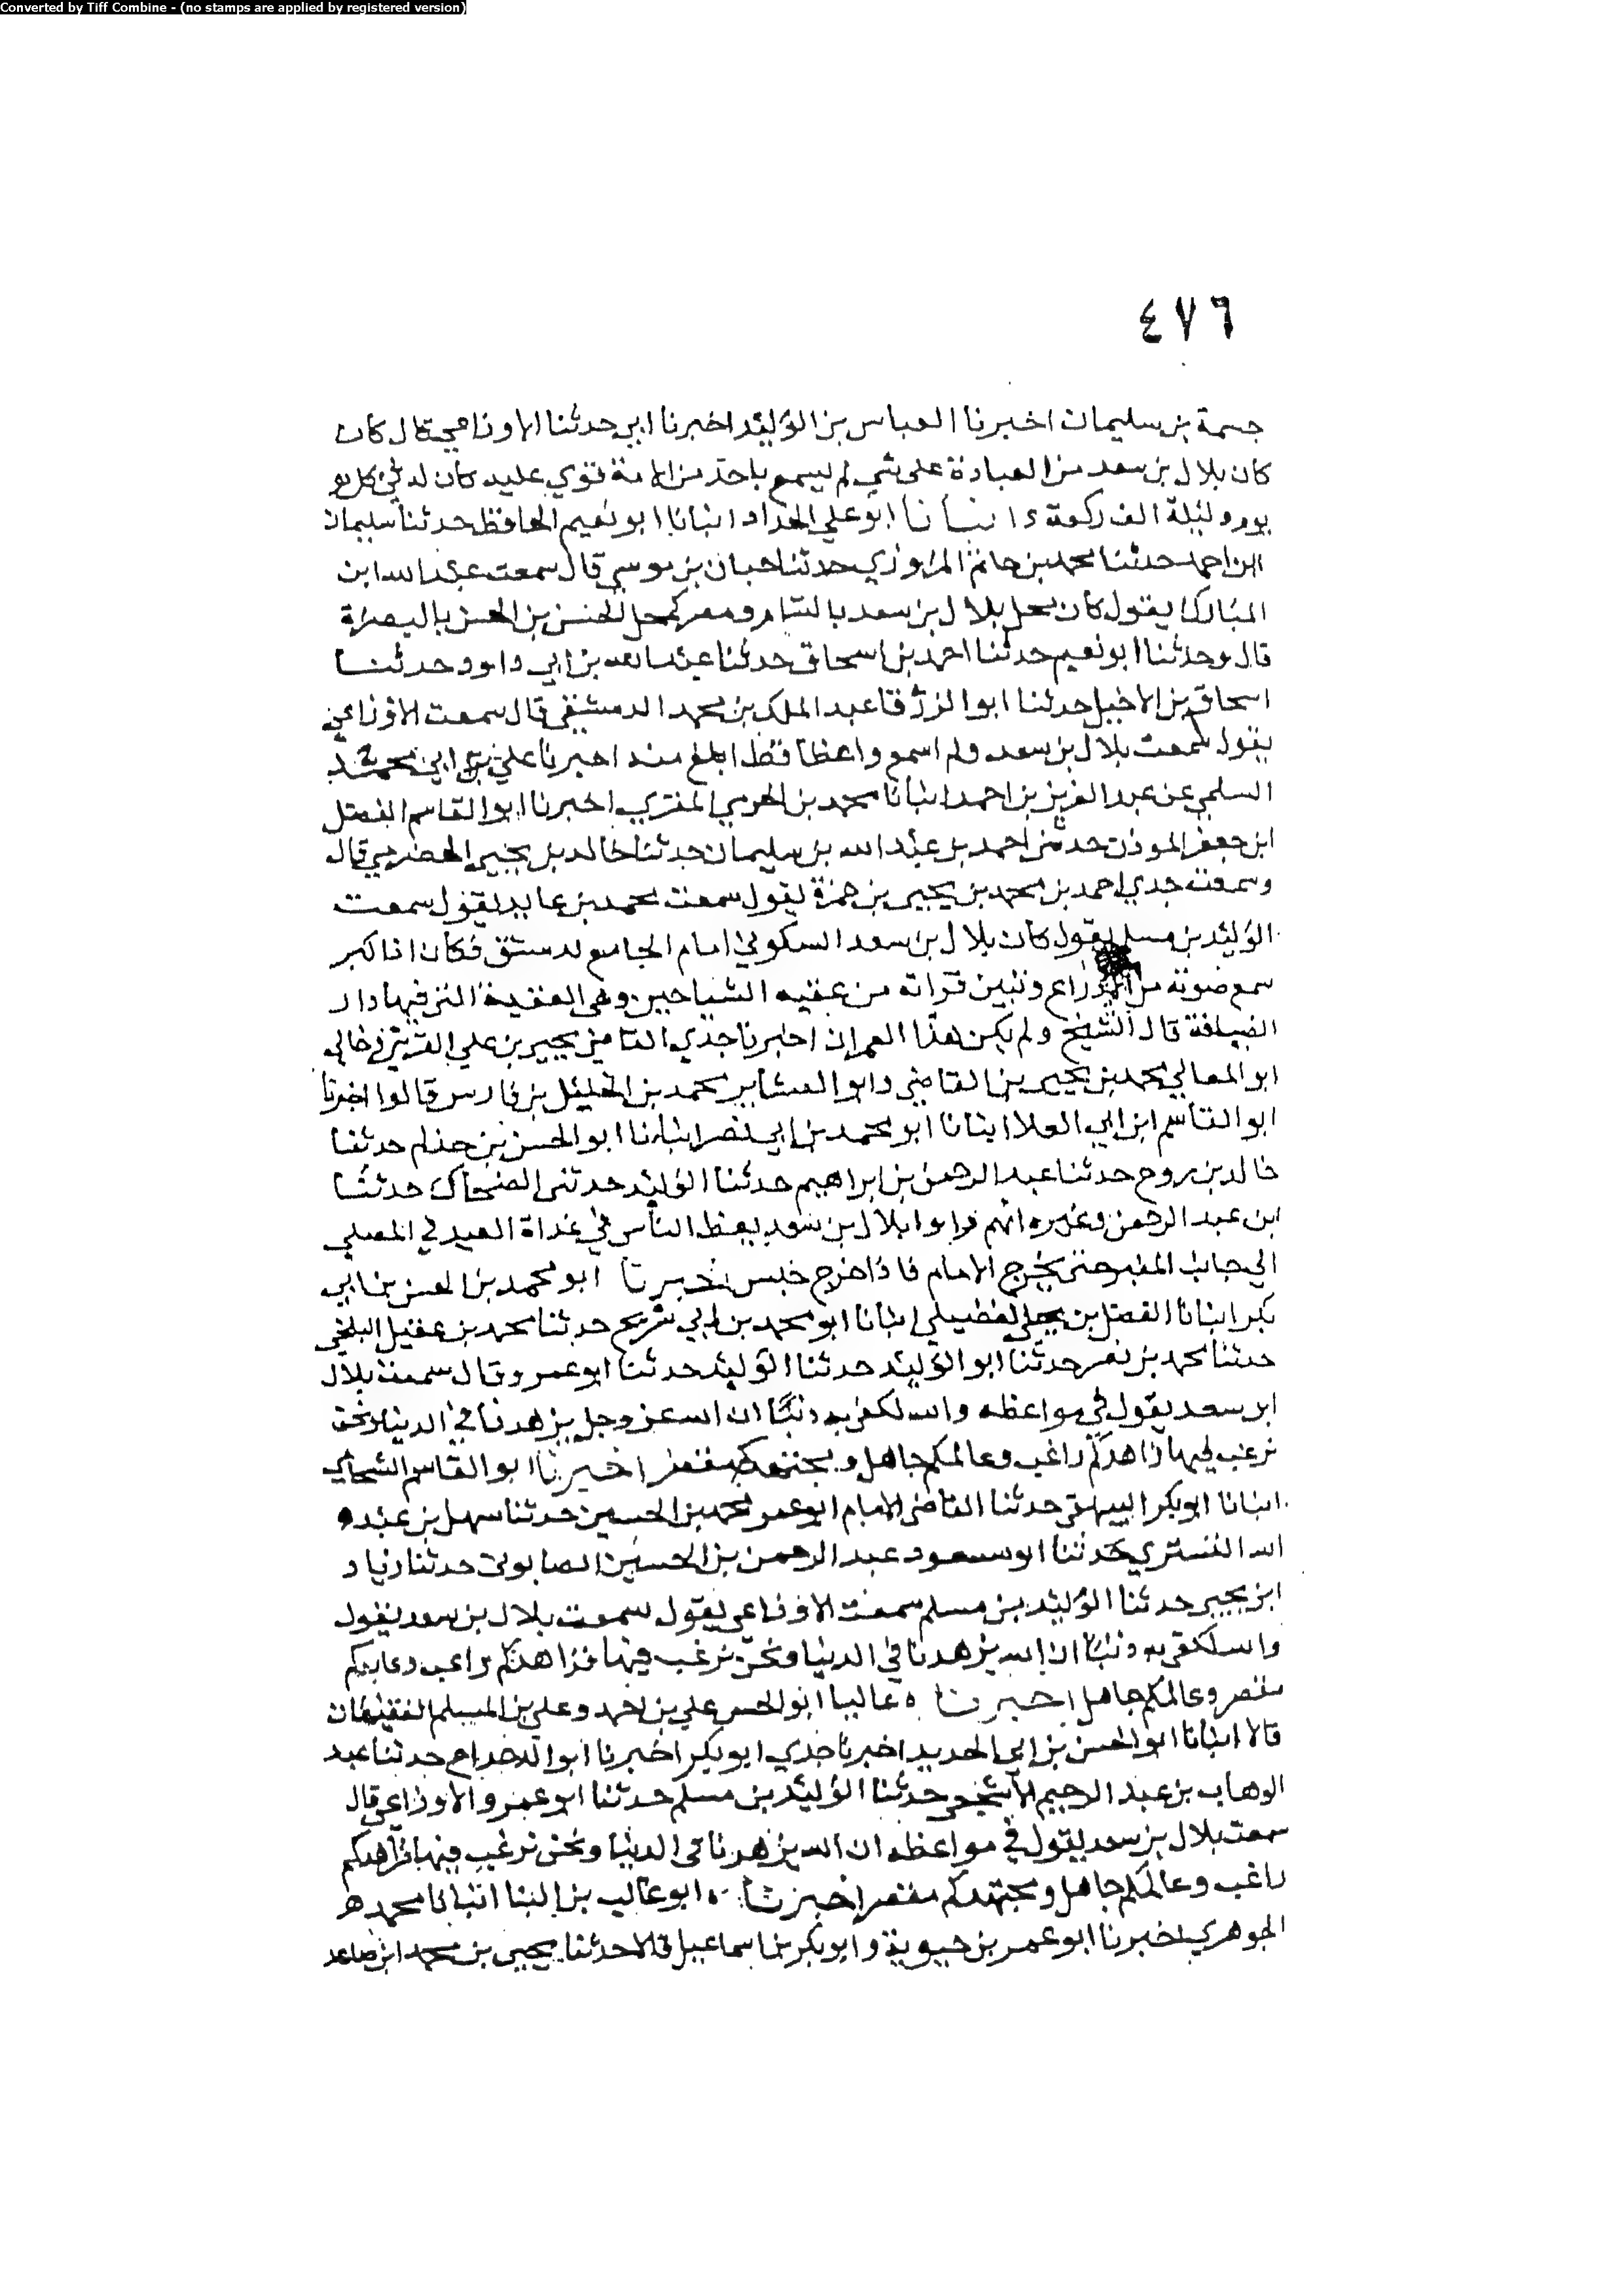 Converted by Tiff Combine - (no stamps are applied by registered version)
٤٧٦
بن سليمان اخبرنا العباس بن الوليد اخبرنا ابي حدثنا الاوزاعي قال كان
كان بلال بن سعد من العبادة على شي لم يسمع باحد من الامة قوي عليه كان له في كل
يوم وليلة الف ركعة انبانا ابو علي الحداد انبانا ابو نعيم الحافظ حدثنا سليمان
ابن احمد حدثنا محمد بن حاتم المروزي حدثنا حبان بن موسى قال سمعت عبد الله ابن
المبارك يقول كان محل بلال بن سعد بالشام ومصر كمحل الحسن بن الحسن بالبصرة
قال وحدثنا ابو نعيم حدثنا احمد بن اسحاق حدثنا عبد الله بن ابي داود حدثنا
اسحاق بن الاخيل حدثنا ابو الزرقا عبد الملك بن محمد الدمشقي قال سمعت الاوزاعي
يقول سمعت بلال بن سعد ولم اسمع واعظا قط ابلغ منه اخبرنا علي بن ابي محمد
السلمي عن عبد العزيز بن احمد انبانا محمد بن الحرمي المقري اخبرنا ابو القاسم الفضل
ابن جعفر الموذن حدثني احمد بن عبد الله بن سليمان حدثنا خالد بن يحيى الحضرمي قال
وسمعت جدي احمد بن محمد بن يحيى بن حمزة يقول سمعت محمد بن عايد يقول سمعت
الوليد بن مسلم يقول كان بلال بن سعد السكوني امام الجامع لدمشق فكان اذا كبر
سمع صوته من وتبين قراته من عقبه الشياحين وهي العقبة التي فيها دار
الضيافة قال الشيخ ولم يكن هذا العمران اخبرنا جدي القاضي يحيى بن علي القرشي خالي
ابو المعالي محمد بن يحيى بن القاضي وابو العشاير محمد بن الخليل بن فارس قالوا اخبرنا
ابو القاسم ابن ابي العلا انبانا ابو محمد بن ابي نصر انبانا ابو الحسن بن حذلم حدثنا
خالد بن روح حدثنا عبد الرحمن بن ابراهيم حدثنا الوليد حدثني الضحاك حدثنا
ابن عبد الرحمن وغيره انهم راوا بلال بن سعد يعظ الناس في غداة العيد في المصلى
الى جانب المنبر حتى يخرج الامام فاذا خرج جلس اخبرنا ابو محمد بن الحسن بن ابي
بكر انبانا الفضل بن يحيى الفضيلي انبانا ابو محمد بن ابي شريح حدثنا محمد بن عقيل البلخي
حدثنا محمد بن نصر حدثنا ابو الوليد حدثنا الوليد حدثنا ابو عمرو قال سمعت بلال
ابن سعد يقول في مواعظه والله لكفى به ذنبا ان الله عز وجل يزهدنا في الدنيا ونحن
نرغب فيها زاهدكم راغب وعالمكم جاهل ومجتهدكم مقصر اخبرنا ابو القاسم الشحامي
انبانا ابو بكر البيهقي حدثنا القاضي الامام ابو عمر محمد بن الحسين حدثنا سهل بن عبد
الله التستري حدثنا ابو سعود عبد الرحمن بن الحسين الصابوني حدثنا زياد
ابن يحيى حدثنا الوليد بن مسلم سمعت الاوزاعي يقول سمعت بلال بن سعد يقول
والله لكفى به ذنبا ان الله يزهدنا في الدنيا ونحن نرغب فيها فزاهدكم راغب وعابدكم
مقصر وعالمكم جاهل اخبرنا عاليا ابو الحسن علي بن احمد وعلي بن المسلم الفقيهان
قالا انبانا ابو الحسن بن ابي الحديد اخبرنا جدي ابو بكر اخبرنا ابو الدحداح حدثنا عبد
الوهاب بن عبد الرحيم الاشجعي حدثنا الوليد بن مسلم حدثنا ابو عمرو الاوزاعي قال
سمعت بلال بن سعد يقول في مواعظه ان الله يزهدنا في الدنيا ونحن نرغب فيها فزاهدكم
راغب وعالمكم جاهل ومجتهدكم مقصر اخبرنا ابو غالب بن البنا انبانا محمد
الجوهري اخبرنا ابو عمر بن حيوية وابو بكر بن اسماعيل قالا حدثنا يحيى بن محمد ابن صاعد